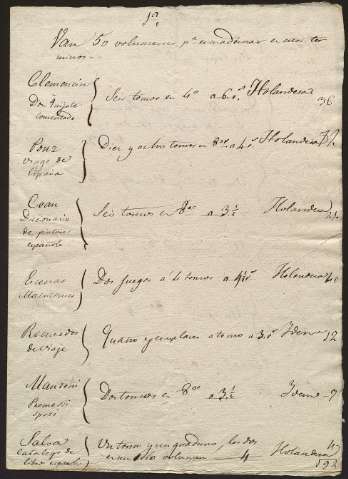 1ª
Van 50 volumenes pª encuadernar en estos ter
minos.
Clemencin
Don Quijote
comentado
Seis tomos en 4º a 6 rs Holandesa 36
Ponz
Viage de
España
Diez y ocho tomos en 8vo a 4 rs Holandesa 72
Cean
Diccionario
de pintores
españoles
Seis tomos en 8vo a 3½ Holandesa 21
Escenas
Matritenses
Dos juegos a 4 tomos a Holandesa 40
Recuerdos
de viaje
Cuatro ejemplares a tomo a 3 rs Idem 12
Manzoni
Promessi
sposi
Dos tomos en 8vo a 3½ Idem 7
Salvá
Catalogo de
libros español
Un tomo y un quaderno, los dos
en un solo volumen 4 Holandesa 4
192